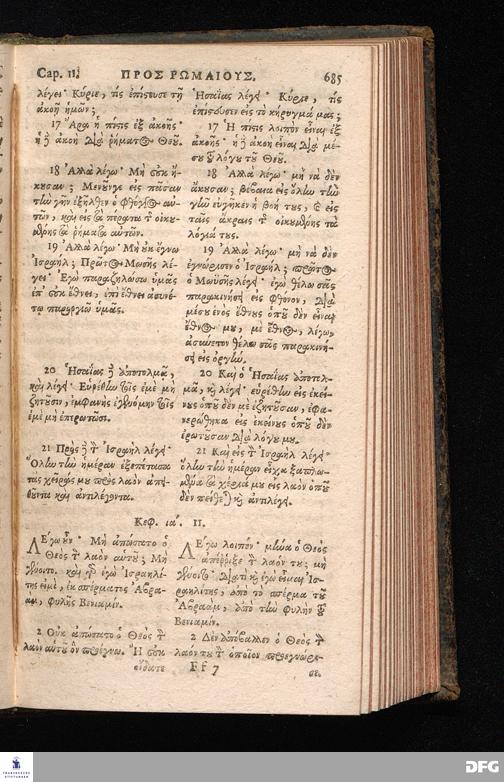 Cap. 11. ΠΡΟΣ ΡΩΜΑΙΟΥΣ. 685
λέγει· Κύριε, τίς ἐπίστευσε τῇ
ἀκοῇ ἡμῶν;
17 Ἄρα ἡ πίστις ἐξ ἀκοῆς·
ἡ δὲ ἀκοὴ διὰ ῥήματος Θεοῦ.
18 Ἀλλὰ λέγω· Μὴ οὐκ ἤ-
κουσαν; Μενοῦνγε εἰς πᾶσαν
τὴν γῆν ἐξῆλθεν ὁ φθόγγος αὐ-
τῶν, καὶ εἰς τὰ πέρατα τῆς οἰκου-
μένης τὰ ῥήματα αὐτῶν.
19 Ἀλλὰ λέγω· Μὴ οὐκ ἔγνω
Ἰσραήλ; Πρῶτος Μωσῆς λέ-
γει· Ἐγὼ παραζηλώσω ὑμᾶς
ἐπ' οὐκ ἔθνει, ἐπὶ ἔθνει ἀσυνέ-
τῳ παροργιῶ ὑμᾶς.
20 Ἡσαΐας δὲ ἀποτολμᾷ,
καὶ λέγει· Εὑρέθην τοῖς ἐμὲ μὴ
ζητοῦσιν, ἐμφανὴς ἐγενόμην τοῖς
ἐμὲ μὴ ἐπερωτῶσι.
21 Πρὸς δὲ τὸν Ἰσραὴλ λέγει·
Ὅλην τὴν ἡμέραν ἐξεπέτασα
τὰς χεῖράς μου πρὸς λαὸν ἀπει-
θοῦντα καὶ ἀντιλέγοντα.
Ἡσαΐας λέγει· Κύριε, τίς
ἐπίστευσεν εἰς τὸ κήρυγμά μας;
17 Ἡ πίστις λοιπὸν εἶναι ἐξ
ἀκοῆς· ἡ δὲ ἀκοὴ εἶναι διὰ μέ-
σου τοῦ λόγου τοῦ Θεοῦ.
18 Ἀλλὰ λέγω· μὴ νὰ δὲν
ἄκουσαν; βέβαια εἰς ὅλην τὴν
γῆν εὐγῆκεν ἡ βοή τους, καὶ εἰς
ταῖς ἄκραις τῆς οἰκουμένης τὰ
λόγιά τους.
19 Ἀλλὰ λέγω· μὴ νὰ δὲν
ἐγνώρισεν ὁ Ἰσραήλ; πρῶτος
ὁ Μωϋσῆς λέγει· ἐγὼ θέλω σᾶς
παρακινήσει εἰς φθόνον, διὰ
μέσου ἑνὸς ἔθνους ὁποῦ δὲν εἶναι
ἔθνος μου, μὲ ἔθνος, λέγω,
ἀσύνετον θέλω σᾶς παρακινή-
σει εἰς ὀργήν.
20 Καὶ ὁ Ἡσαΐας ἀποτολ-
μᾷ, καὶ λέγει· εὑρέθην εἰς ἐκεί-
νους ὁποῦ δὲν μὲ ἐζήτησαν, ἐφα-
νερώθηκα εἰς ἐκείνους ὁποῦ δὲν
ἐρώτησαν διὰ λόγου μου.
21 Καὶ εἰς τὸν Ἰσραὴλ λέγει·
ὅλην τὴν ἡμέραν εἶχα ξαπλω-
μένα τὰ χέριά μου εἰς λαὸν ὁποῦ
δὲν πείθεται καὶ ἀντιλέγει.
Κεφ. ια΄. 11.
Λέγω οὖν· Μὴ ἀπώσατο ὁ
Θεὸς τὸν λαὸν αὑτοῦ; Μὴ
γένοιτο. καὶ γὰρ ἐγὼ Ἰσραηλί-
της εἰμὶ, ἐκ σπέρματος Ἀβρα-
ὰμ, φυλῆς Βενιαμίν.
2 Οὐκ ἀπώσατο ὁ Θεὸς τὸν
λαὸν αὑτοῦ ὃν προέγνω. Ἢ οὐκ
οἴδατε
Λέγω λοιπόν· μήνα ὁ Θεὸς
ἀπέρριξε τὸν λαόν του; μὴ
γένοιτο. διατὶ καὶ ἐγὼ εἶμαι Ἰσ-
ραηλίτης, ἀπὸ τὸ σπέρμα τοῦ
Ἀβραὰμ, ἀπὸ τὴν φυλὴν τοῦ
Βενιαμίν.
2 Δὲν ἀπέβαλεν ὁ Θεὸς τὸν
λαόν του τὸν ὁποῖον προεγνώρι-
Ff 7 σε.
FRANCKESCHE
STIFTUNGEN
DFG